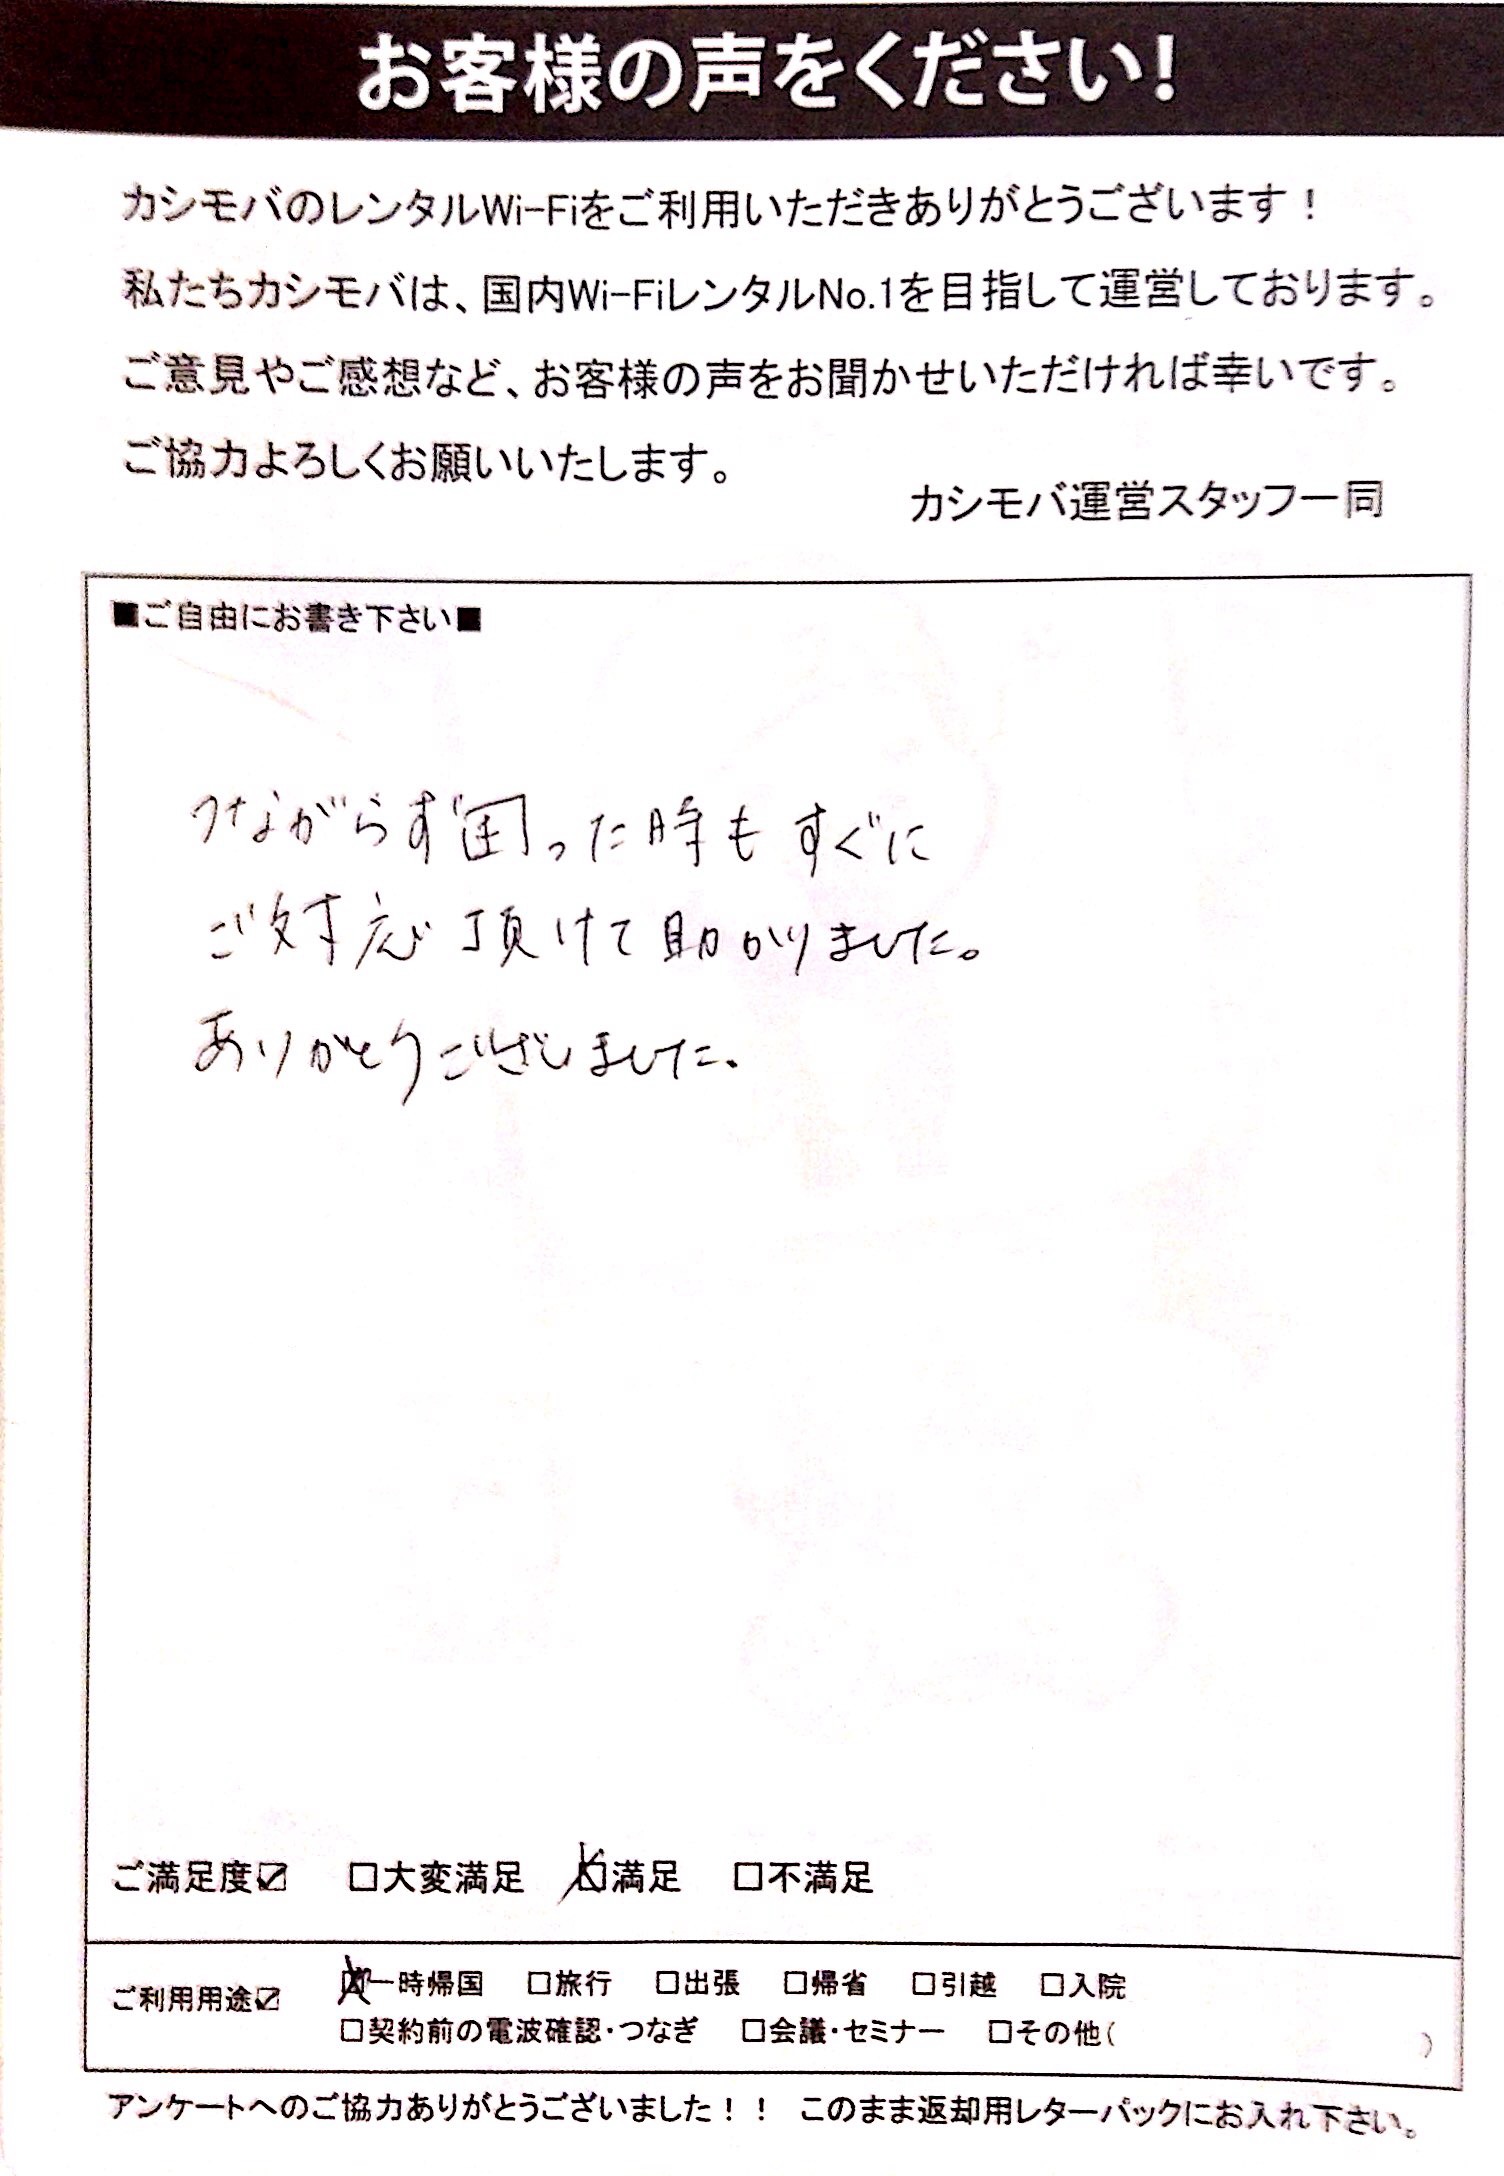 お客様の声をください!
カシモバのレンタルWi-Fiをご利用いただきありがとうございます！
私たちカシモバは、国内Wi-FiレンタルNo.1を目指して運営しております。
ご意見やご感想など、お客様の声をお聞かせいただければ幸いです。
ご協力よろしくお願いいたします。
カシモバ運営スタッフ一同
■ご自由にお書き下さい■
つながらず困った時もすぐに
ご対応頂けて助かりました。
ありがとうございました。
ご満足度☑ □大変満足 ☑満足 □不満足
ご利用用途☑ ☑一時帰国 □旅行 □出張 □帰省 □引越 □入院
□契約前の電波確認・つなぎ □会議・セミナー □その他( )
アンケートへのご協力ありがとうございました！！ このまま返却用レターパックにお入れ下さい。